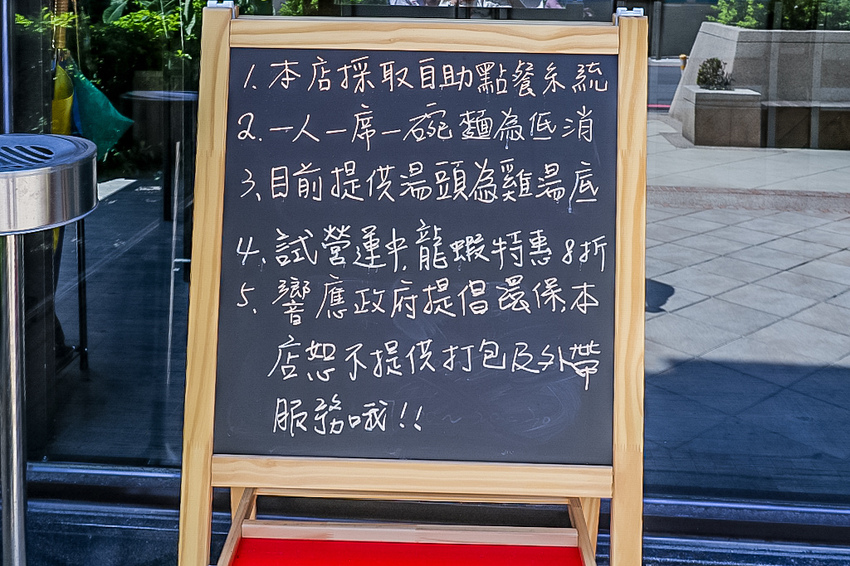 1. 本店採取自助點餐系統
2. 一人一席一碗麵為低消
3. 目前提供湯頭為雞湯底
4. 試營運中,龍蝦特惠8折
5. 響應政府提倡環保本
店恕不提供打包及外帶
服務哦!!